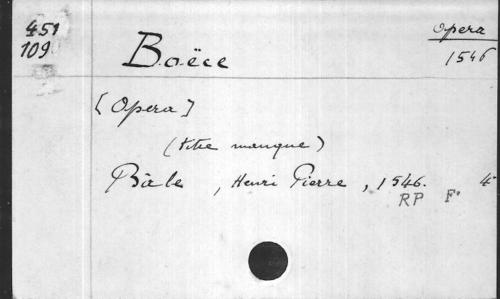 451
109
Opera
1546
Boëce
[Opera]
(titre manque)
Bâle, Henri Pierre, 1546. 4°
RP F°